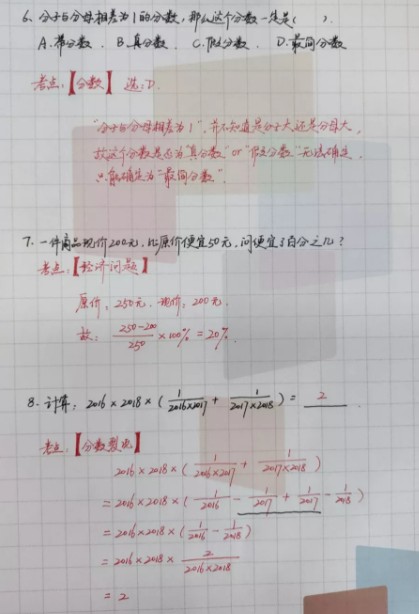 6. 分子与分母相差为1的分数，那么这个分数一定是(    ).
A. 带分数. B. 真分数. C. 假分数. D. 最简分数
考点：【分数】 选：D.
"分子与分母相差为1"，并不知道是分子大还是分母大，
故这个分数是否为"真分数"or"假分数"无法确定，
只能确定为"最简分数".
7. 一件商品现价200元，比原价便宜50元，问便宜了百分之几？
考点：【经济问题】
原价：250元. 现价：200元.
故：(250-200)/250 × 100% = 20%.
8. 计算：2016×2018×(1/(2016×2017) + 1/(2017×2018)) = 2.
考点：【分数裂项】
2016×2018×(1/(2016×2017) + 1/(2017×2018))
= 2016×2018×(1/2016 - 1/2017 + 1/2017 - 1/2018)
= 2016×2018×(1/2016 - 1/2018)
= 2016×2018× 2/(2016×2018)
= 2